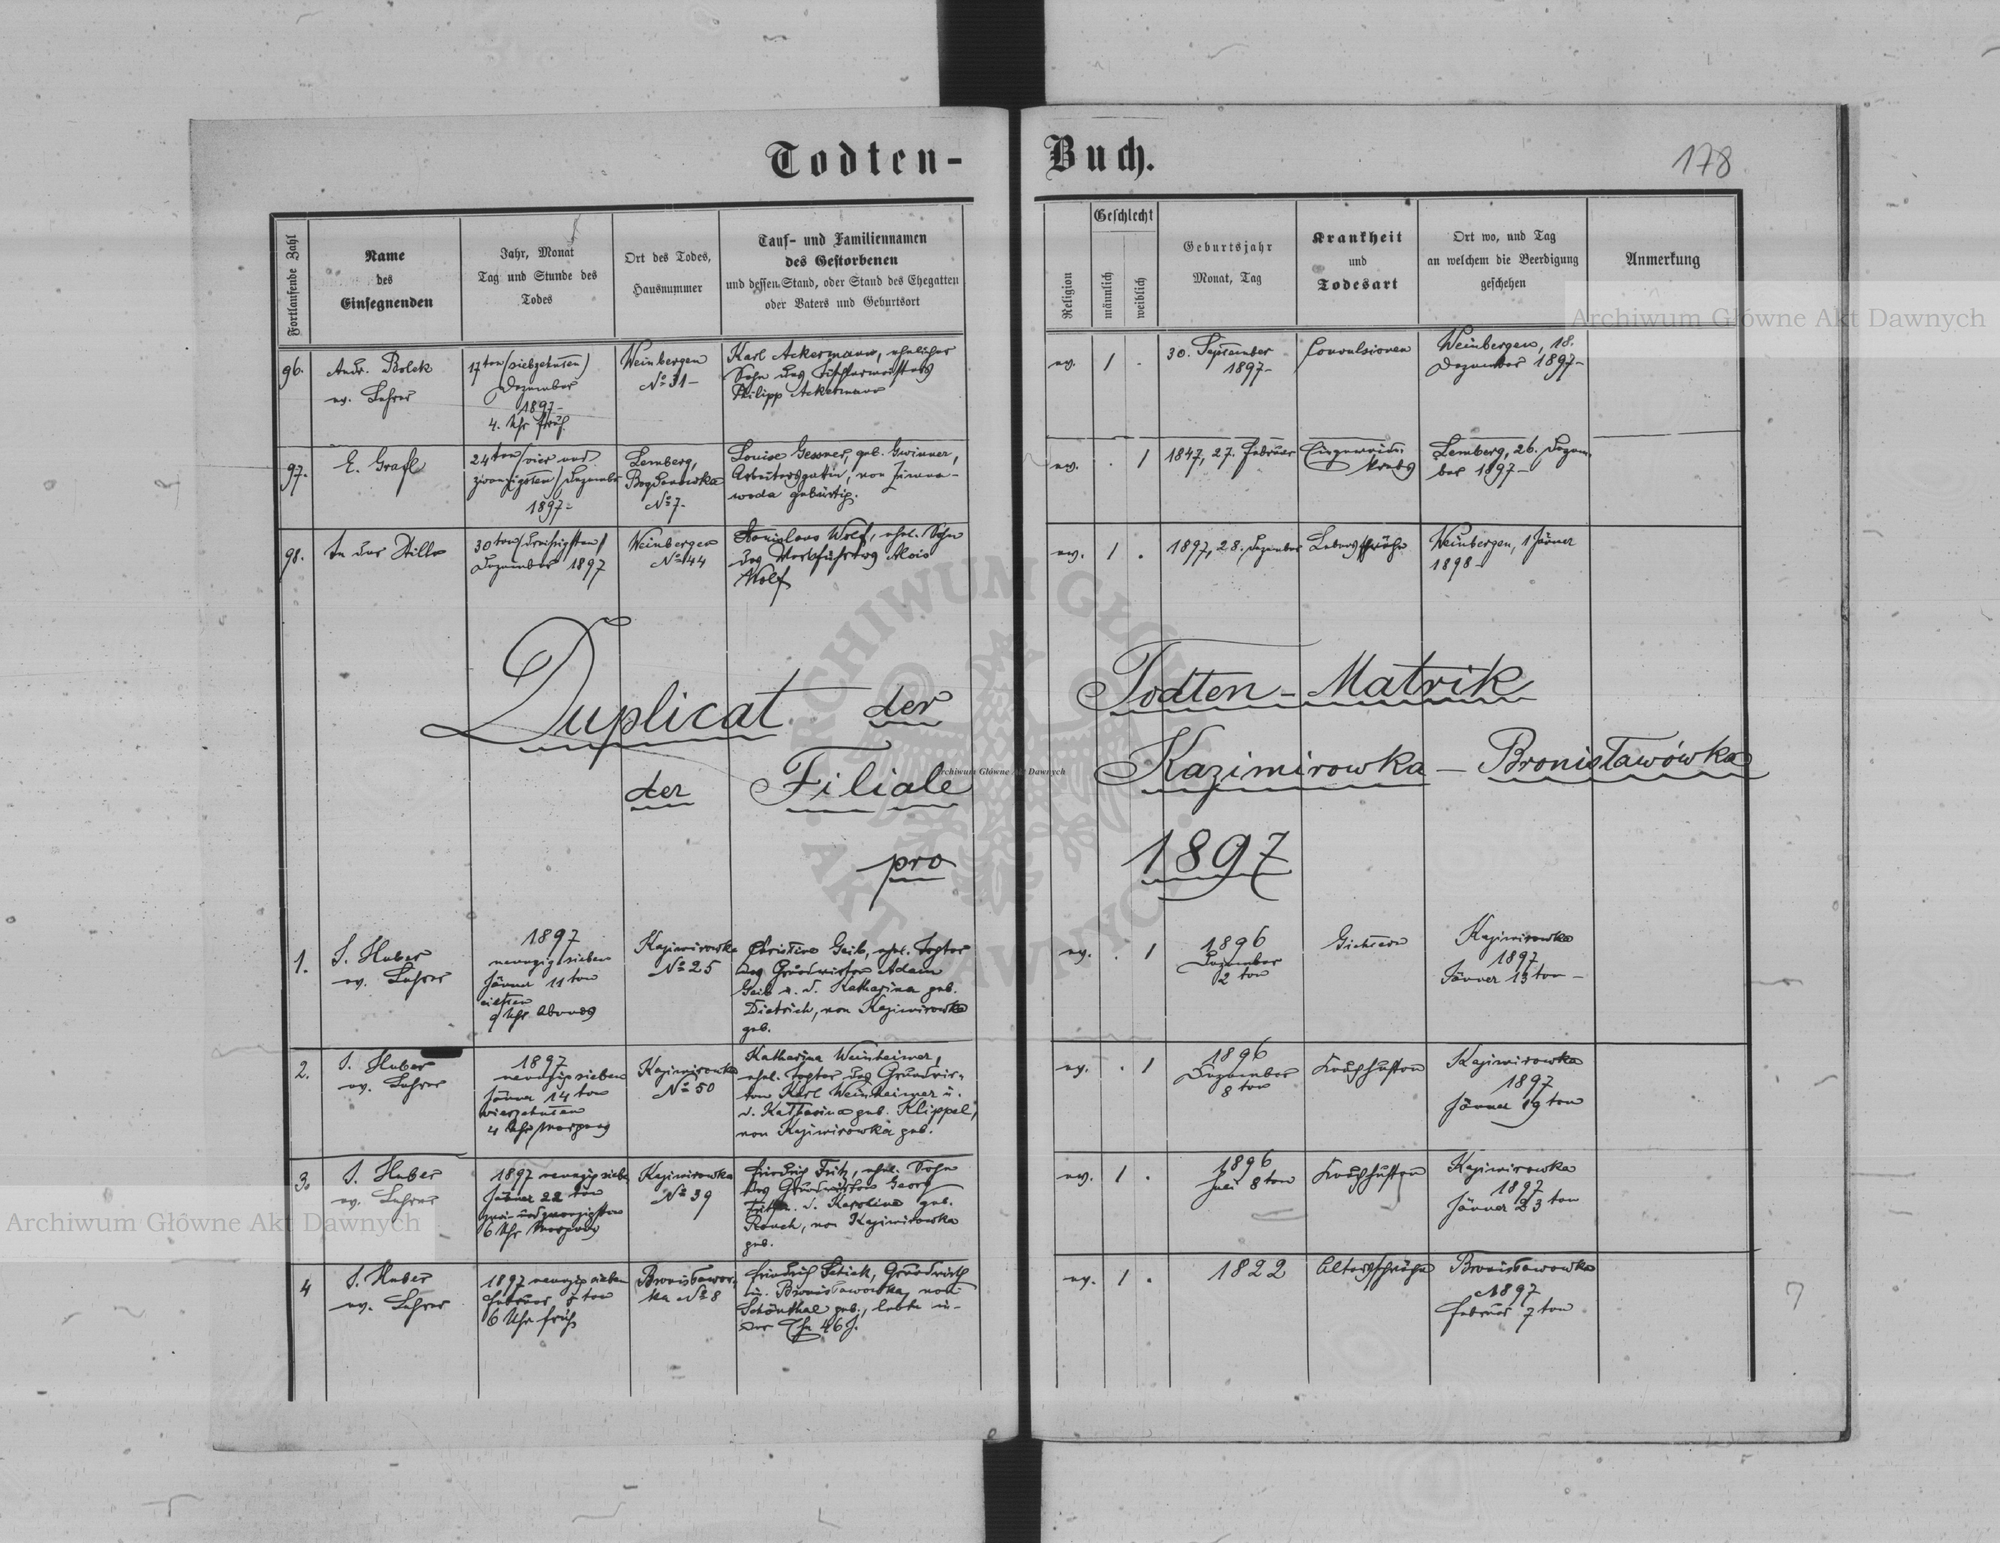 Todten-
Buch.
178
Fortlaufende Zahl
Name
des
Einsegnenden
Jahr, Monat
Tag und Stunde des
Todes
Ort des Todes,
Hausnummer
Tauf- und Familiennamen
des Gestorbenen
und dessen Stand, oder Stand des Ehegatten
oder Vaters und Geburtsort
Religion
Geschlecht
männlich
weiblich
Geburtsjahr
Monat, Tag
Krankheit
und
Todesart
Ort wo, und Tag
an welchem die Beerdigung
geschehen
Anmerkung
96.
Andr. Bolek
ev. Lehrer
17ten (siebzehnten)
Dezember
1897-
4. Uhr früh
Weinbergen
No 31-
Karl Ackermann, ehelicher
Sohn des Tischlermeisters
Philipp Ackermann
ev.
1
.
30. September
1897-
Convulsionen
Weinbergen, 18.
Dezember 1897-
97.
E. Grafl
24ten (vier und
zwanzigsten) Dezember
1897-
Lemberg,
Bogdanowka
No 7-
Louise Gessner, geb. Gwinner,
Arbeitersgattin, von Zimna-
woda gebürtig.
ev.
.
1
1847, 27. Februar
Eingeweide-
krebs
Lemberg, 26. Dezem-
ber 1897-
98.
In der Stille
30ten (dreißigsten)
Dezember 1897
Weinbergen
No 144
Stanislaus Wolf, ehel. Sohn
des Werkführers Alois
Wolf
ev.
1
.
1897, 28. Dezember
Lebensschwäche
Weinbergen, 1 Jänner
1898-
Duplicat der
Todten-Matrik
der Filiale
Kazimirowka - Bronisławówka
pro
1897
1.
J. Huber
ev. Lehrer
1897
neunzig sieben
Jänner 11 ten
eilften
9 Uhr Abends
Kazimirowka
No 25
Christine Geib, ehel. Tochter
des Grundwirten Adam
Geib u. d. Katharina geb.
Dietrich, von Kazimirowka
geb.
ev.
.
1
1896
Dezember
2 ten
Gichtern
Kazimirowka
1897
Jänner 13 ten -
2.
J. Huber
ev. Lehrer
1897
neunzig sieben
Jänner 14 ten
vierzehnten
4 Uhr Morgens
Kazimirowka
No 50
Katharina Weinheimer,
ehel. Tochter des Grundwir-
ten Karl Weinheimer u.
d. Katharina geb. Klippel,
von Kazimirowka geb.
ev.
.
1
1896
Dezember
8 ten
Keuchhusten
Kazimirowka
1897
Jänner 19 ten
3.
J. Huber
ev. Lehrer
1897 neunzig sieben
Jänner 22 ten
zwei und zwanzigsten
6 Uhr Morgens
Kazimirowka
No 39
Friedrich Fritz, ehel. Sohn
des Grundwirten Georg
Fritz u. d. Karoline geb.
Rauch, von Kazimirowka
geb.
ev.
1
.
1896
Juli 8 ten
Keuchhusten
Kazimirowka
1897
Jänner 23 ten
4
J. Huber
ev. Lehrer
1897 neunzig sieben
Februar 7 ten
6 Uhr früh
Bronisławow-
ka No 8
Friedrich Schick, Grundwirth
in Bronisławowka, von
Schönthal geb., lebte in
der Ehe 46 J.
ev.
1
.
1822
Altersschwäche
Bronisławowka
1897
Februar 7 ten
Archiwum Główne Akt Dawnych
Archiwum Główne Akt Dawnych
Archiwum Główne Akt Dawnych
ARCHIWUM GŁÓWNE
AKT DAWNYCH